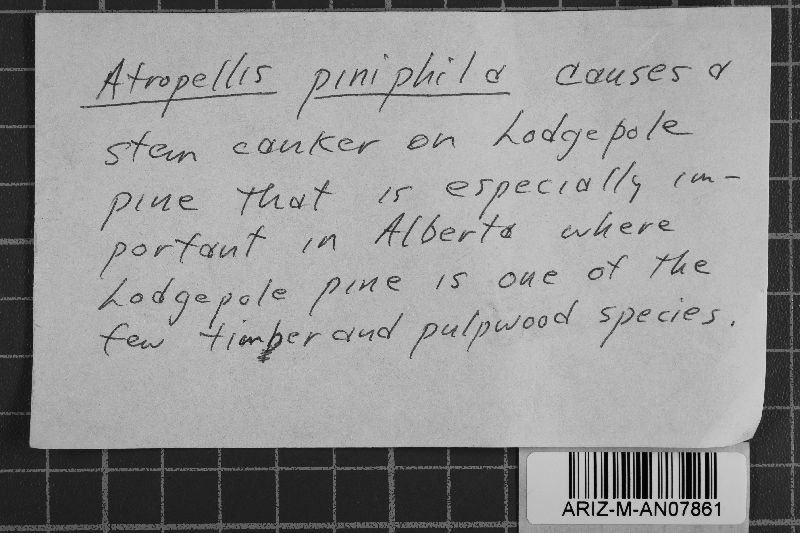 Atropellis piniphila causes a
stem canker on Lodgepole
pine that is especially im-
portant in Alberta where
Lodgepole pine is one of the
few timber and pulpwood species.
ARIZ-M-AN07861